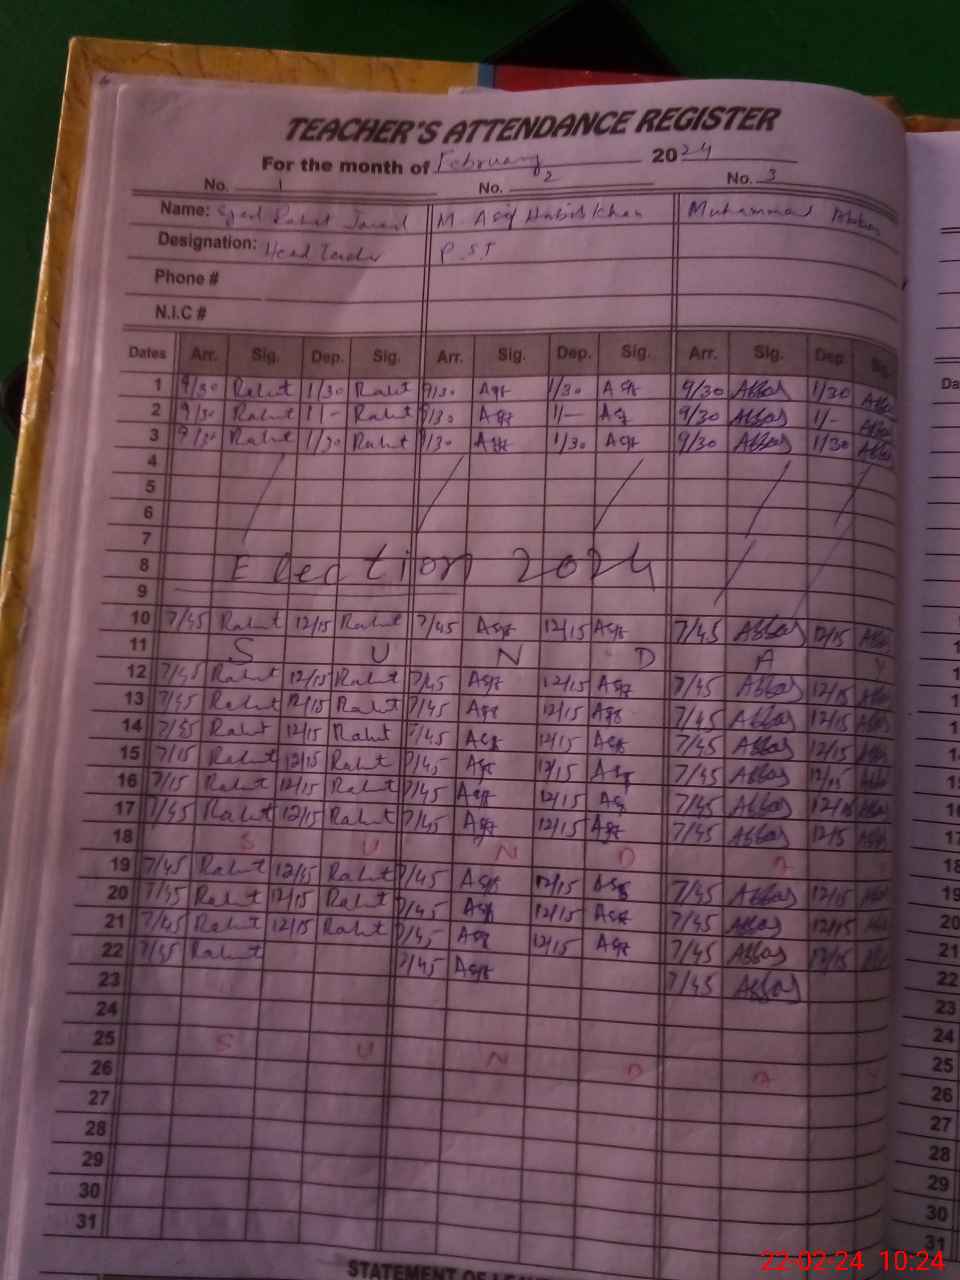 TEACHER'S ATTENDANCE REGISTER
For the month of February 2024
No. 1 No. 2 No. 3
Name: Syed Rahut Javed M. Asif Habib Khan Muhammad Abbas
Designation: Head Teacher P.S.T
Phone #
N.I.C #
Dates Arr. Sig. Dep. Sig. Arr. Sig. Dep. Sig. Arr. Sig. Dep. Sig.
1 9/30 Rahut 1/30 Rahut 9/30 Asf 1/30 Asf 9/30 Abbas 1/30 Abbas
2 9/30 Rahut 1/- Rahut 9/30 Asf 1/- Asf 9/30 Abbas 1/- Abbas
3 9/30 Rahut 1/30 Rahut 9/30 Asf 1/30 Asf 9/30 Abbas 1/30 Abbas
4
5
6
7
8 Election 2024
9
10 7/45 Rahut 12/15 Rahut 7/45 Asf 12/15 Asf 7/45 Abbas 12/15 Abbas
11 S U N D A Y
12 7/45 Rahut 12/15 Rahut 7/45 Asf 12/15 Asf 7/45 Abbas 12/15 Abbas
13 7/45 Rahut 12/15 Rahut 7/45 Asf 12/15 Asf 7/45 Abbas 12/15 Abbas
14 7/45 Rahut 12/15 Rahut 7/45 Asf 12/15 Asf 7/45 Abbas 12/15 Abbas
15 7/15 Rahut 12/15 Rahut 7/45 Asf 12/15 Asf 7/45 Abbas 12/15 Abbas
16 7/15 Rahut 12/15 Rahut 7/45 Asf 12/15 Asf 7/45 Abbas 12/15 Abbas
17 7/45 Rahut 12/15 Rahut 7/45 Asf 12/15 Asf 7/45 Abbas 12/15 Abbas
18 S U N D A
19 7/45 Rahut 12/15 Rahut 7/45 Asf 12/15 Asf 7/45 Abbas 12/15 Abbas
20 7/45 Rahut 12/15 Rahut 7/45 Asf 12/15 Asf 7/45 Abbas 12/15 Abbas
21 7/45 Rahut 12/15 Rahut 7/45 Asf 12/15 Asf 7/45 Abbas 12/15 Abbas
22 7/45 Rahut 7/45 Asf 7/45 Abbas
23
24
25 S U N D A Y
26
27
28
29
30
31
STATEMENT OF
22-02-24 10:24